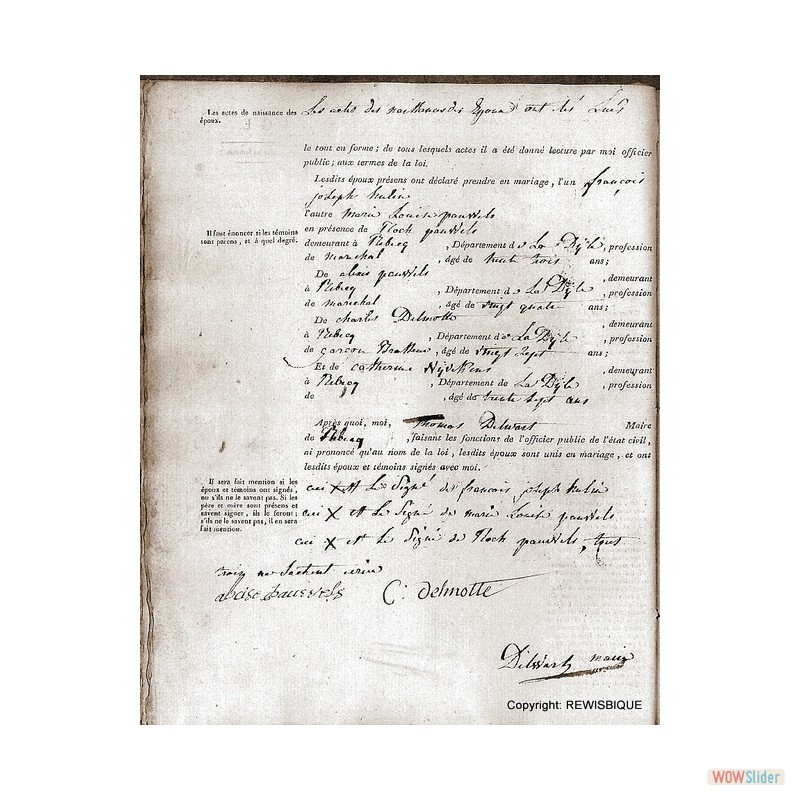 Les actes de naissance des
époux.
Les actes des naissances des Epoux ont été Lues
le tout en forme; de tous lesquels actes il a été donné lecture par moi officier
public; aux termes de la loi.
Lesdits époux présens ont déclaré prendre en mariage, l'un françois
joseph hulin
l'autre marie Louise pauvels
Il faut énoncer si les témoins
sont parens, et à quel degré.
en présence de floch pauvels
demeurant à Rebecq, Département de La Dÿle, profession
de marechal, âgé de trente trois ans;
De alexis pauvels, demeurant
à Rebecq, Département de La Dÿle, profession
de marechal, âgé de vingt quatre ans;
De charles Delmotte, demeurant
à Rebecq, Département de La Dÿle, profession
de garcon Brasseur, âgé de vingt sept ans;
Et de catherine, demeurant
à Rebecq, Département de La Dÿle, profession
de, âgé de trente sept ans
Après quoi, moi, Thomas Delwart Maire
de Rebecq, faisant les fonctions de l'officier public de l'état civil,
ai prononcé qu'au nom de la loi, lesdits époux sont unis en mariage, et ont
lesdits époux et témoins signés avec moi.
Il sera fait mention si les
époux et témoins ont signés,
ou s'ils ne le savent pas. Si les
père et mère sont présens et
savent signer, ils le feront;
s'ils ne le savent pas, il en sera
fait mention.
ceci X est Le Signé de francois joseph hulin
ceci X est Le Signé de marie Louise pauvels
ceci X est Le Signé de floch pauvels, tous
trois ne sachant ecrire
alexise pauwels C. Delmotte
Delwart maire
Copyright: REWISBIQUE
WOWSlider